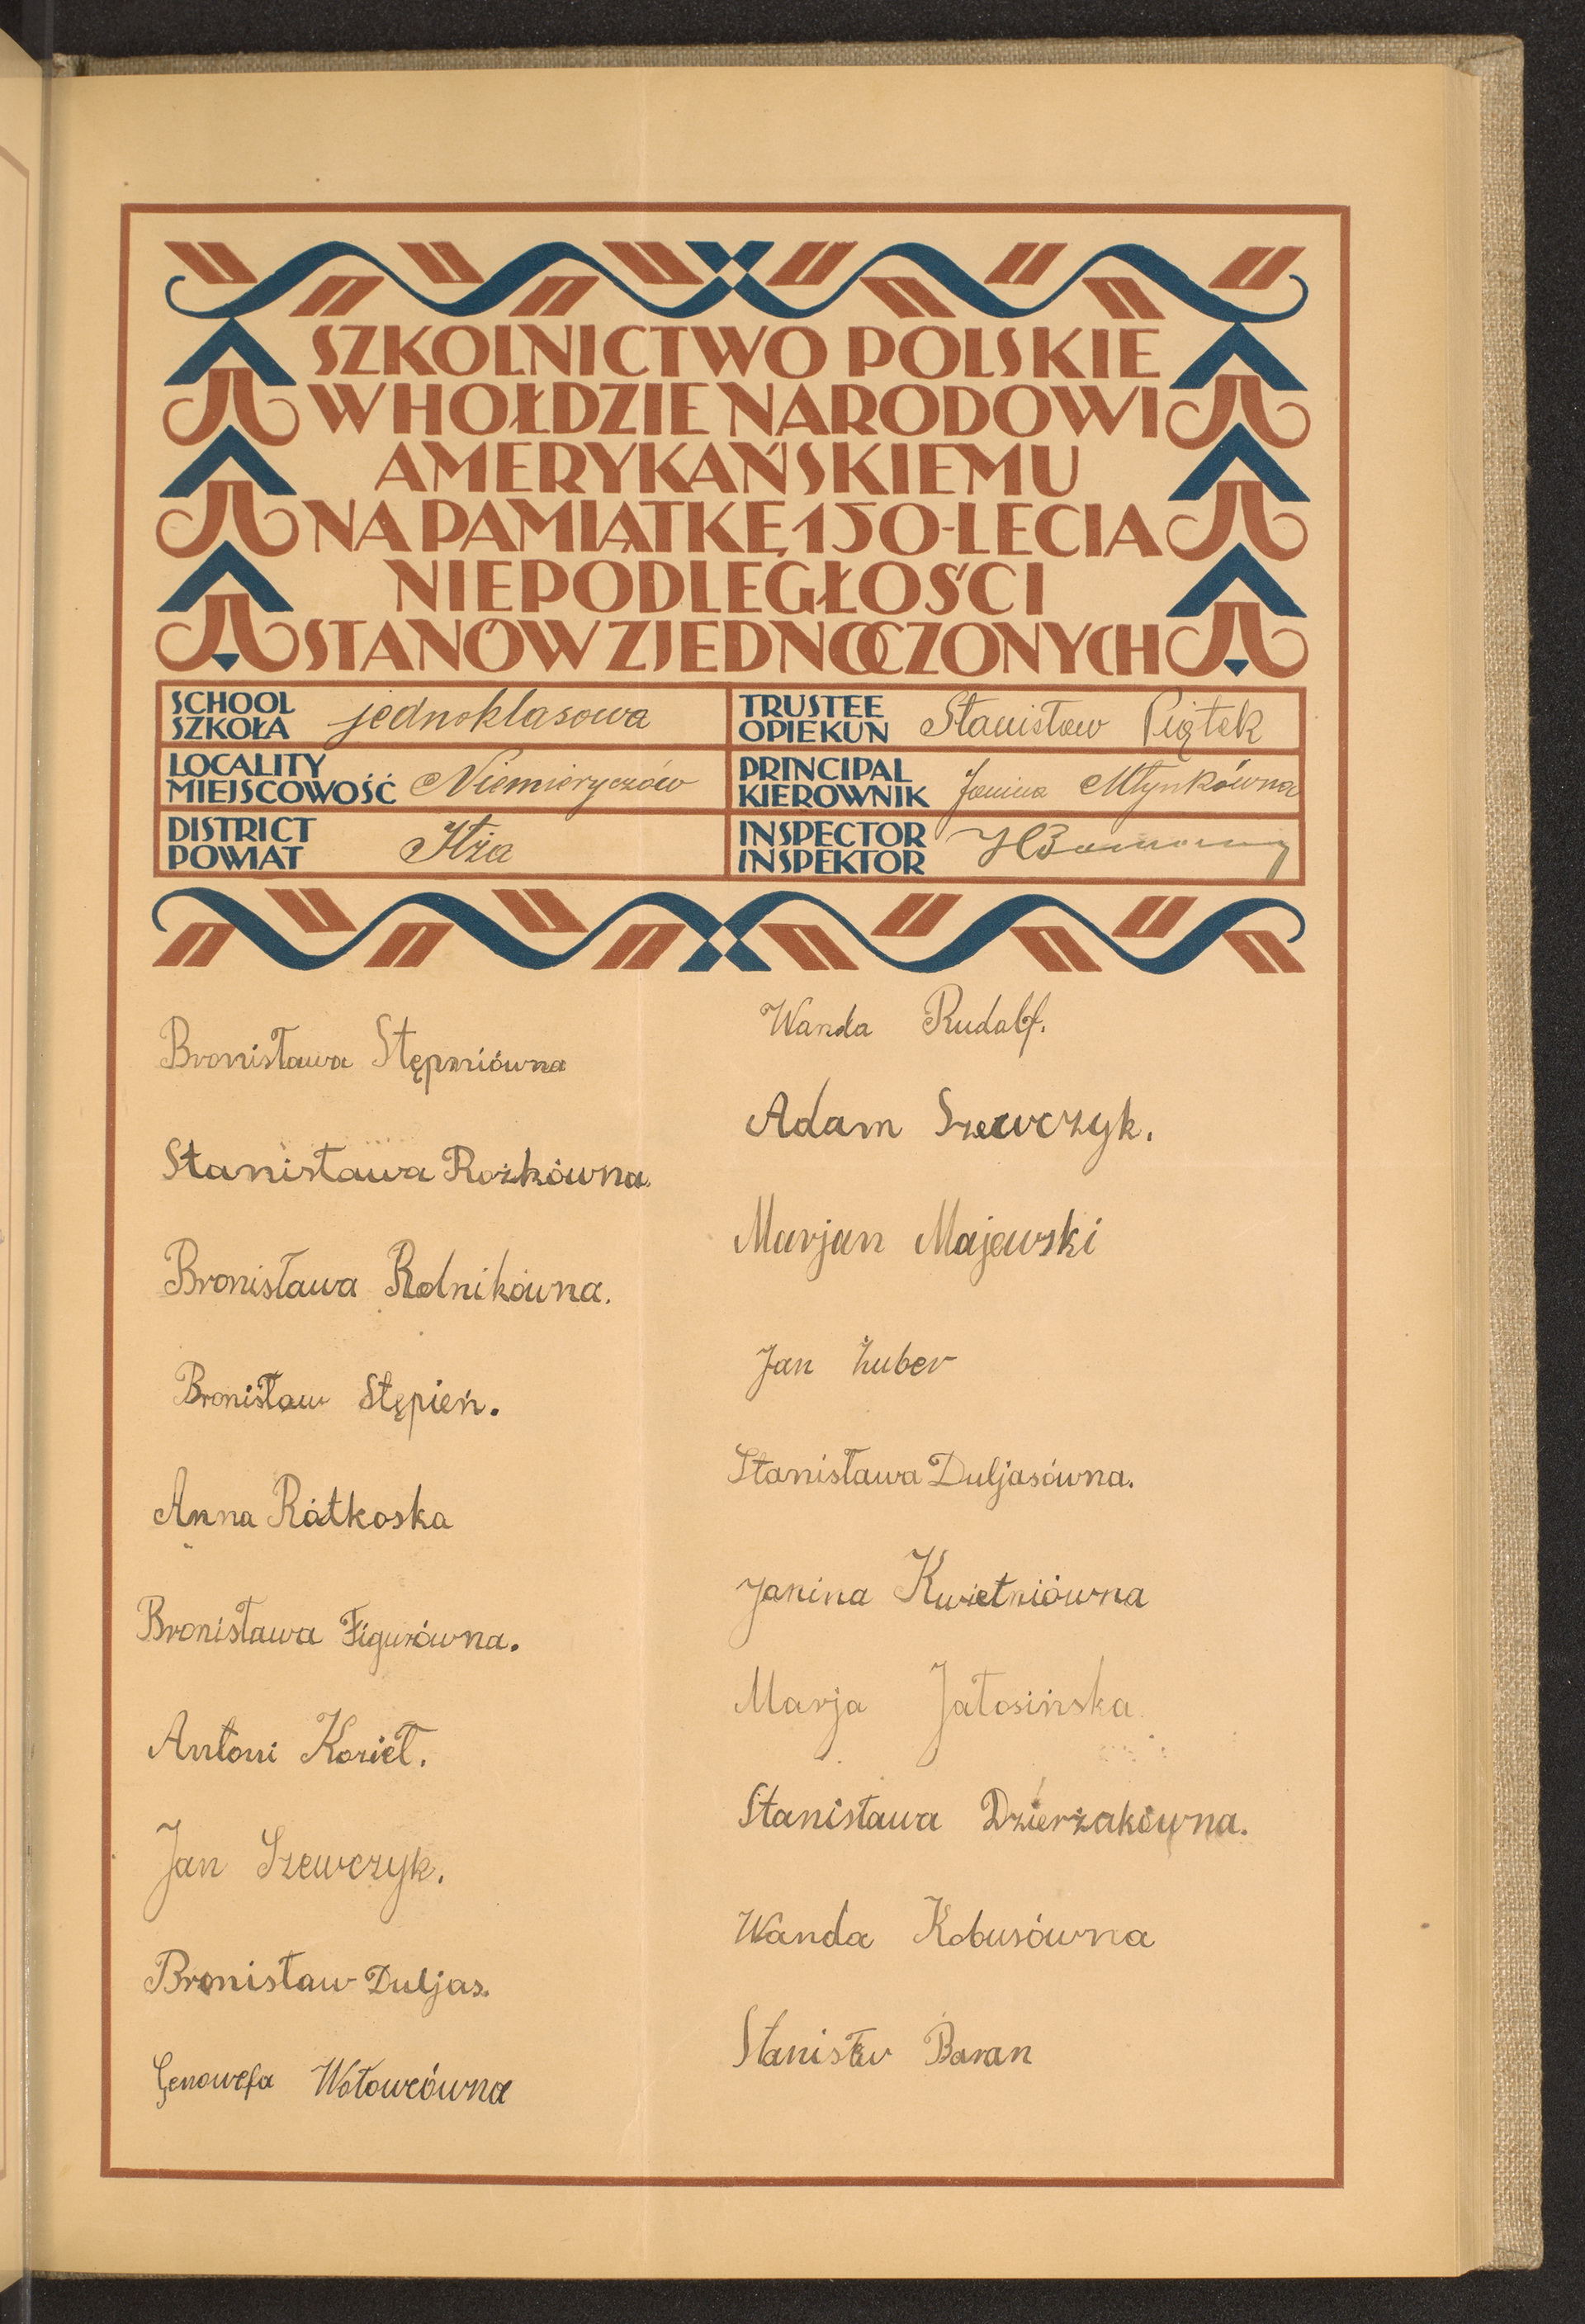 SZKOLNICTWO POLSKIE
W HOŁDZIE NARODOWI
AMERYKAŃSKIEMU
NA PAMIĄTKĘ 150-LECIA
NIEPODLEGŁOŚCI
STANÓW ZJEDNOCZONYCH
SCHOOL
SZKOŁA
jednoklasowa
TRUSTEE
OPIEKUN
Stanisław Piątek
LOCALITY
MIEJSCOWOŚĆ
Niemieryczów
PRINCIPAL
KIEROWNIK
Janina Młynkówna
DISTRICT
POWIAT
Iłża
INSPECTOR
INSPEKTOR
Bronisława Stępniówna
Stanisława Rożkówna.
Bronisława Rolnikówna.
Bronisław Stępień.
Anna Rátkoska
Bronisława Figurówna.
Antoni Kozieł.
Jan Szewczyk.
Bronisław Duljas.
Genowefa Wołowcówna
Wanda Rudolf.
Adam Szewczyk.
Marjan Majewski
Jan Żuber
Stanisława Duljasówna.
Janina Kwietniówna
Marja Jałosińska.
Stanisława Dzierżakówna.
Wanda Kobusówna
Stanisław Baran